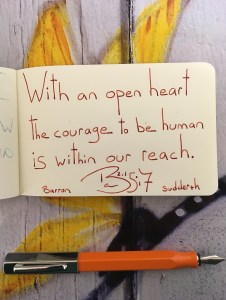 With an open heart
the courage to be human
is within our reach.
Barron Sudderth